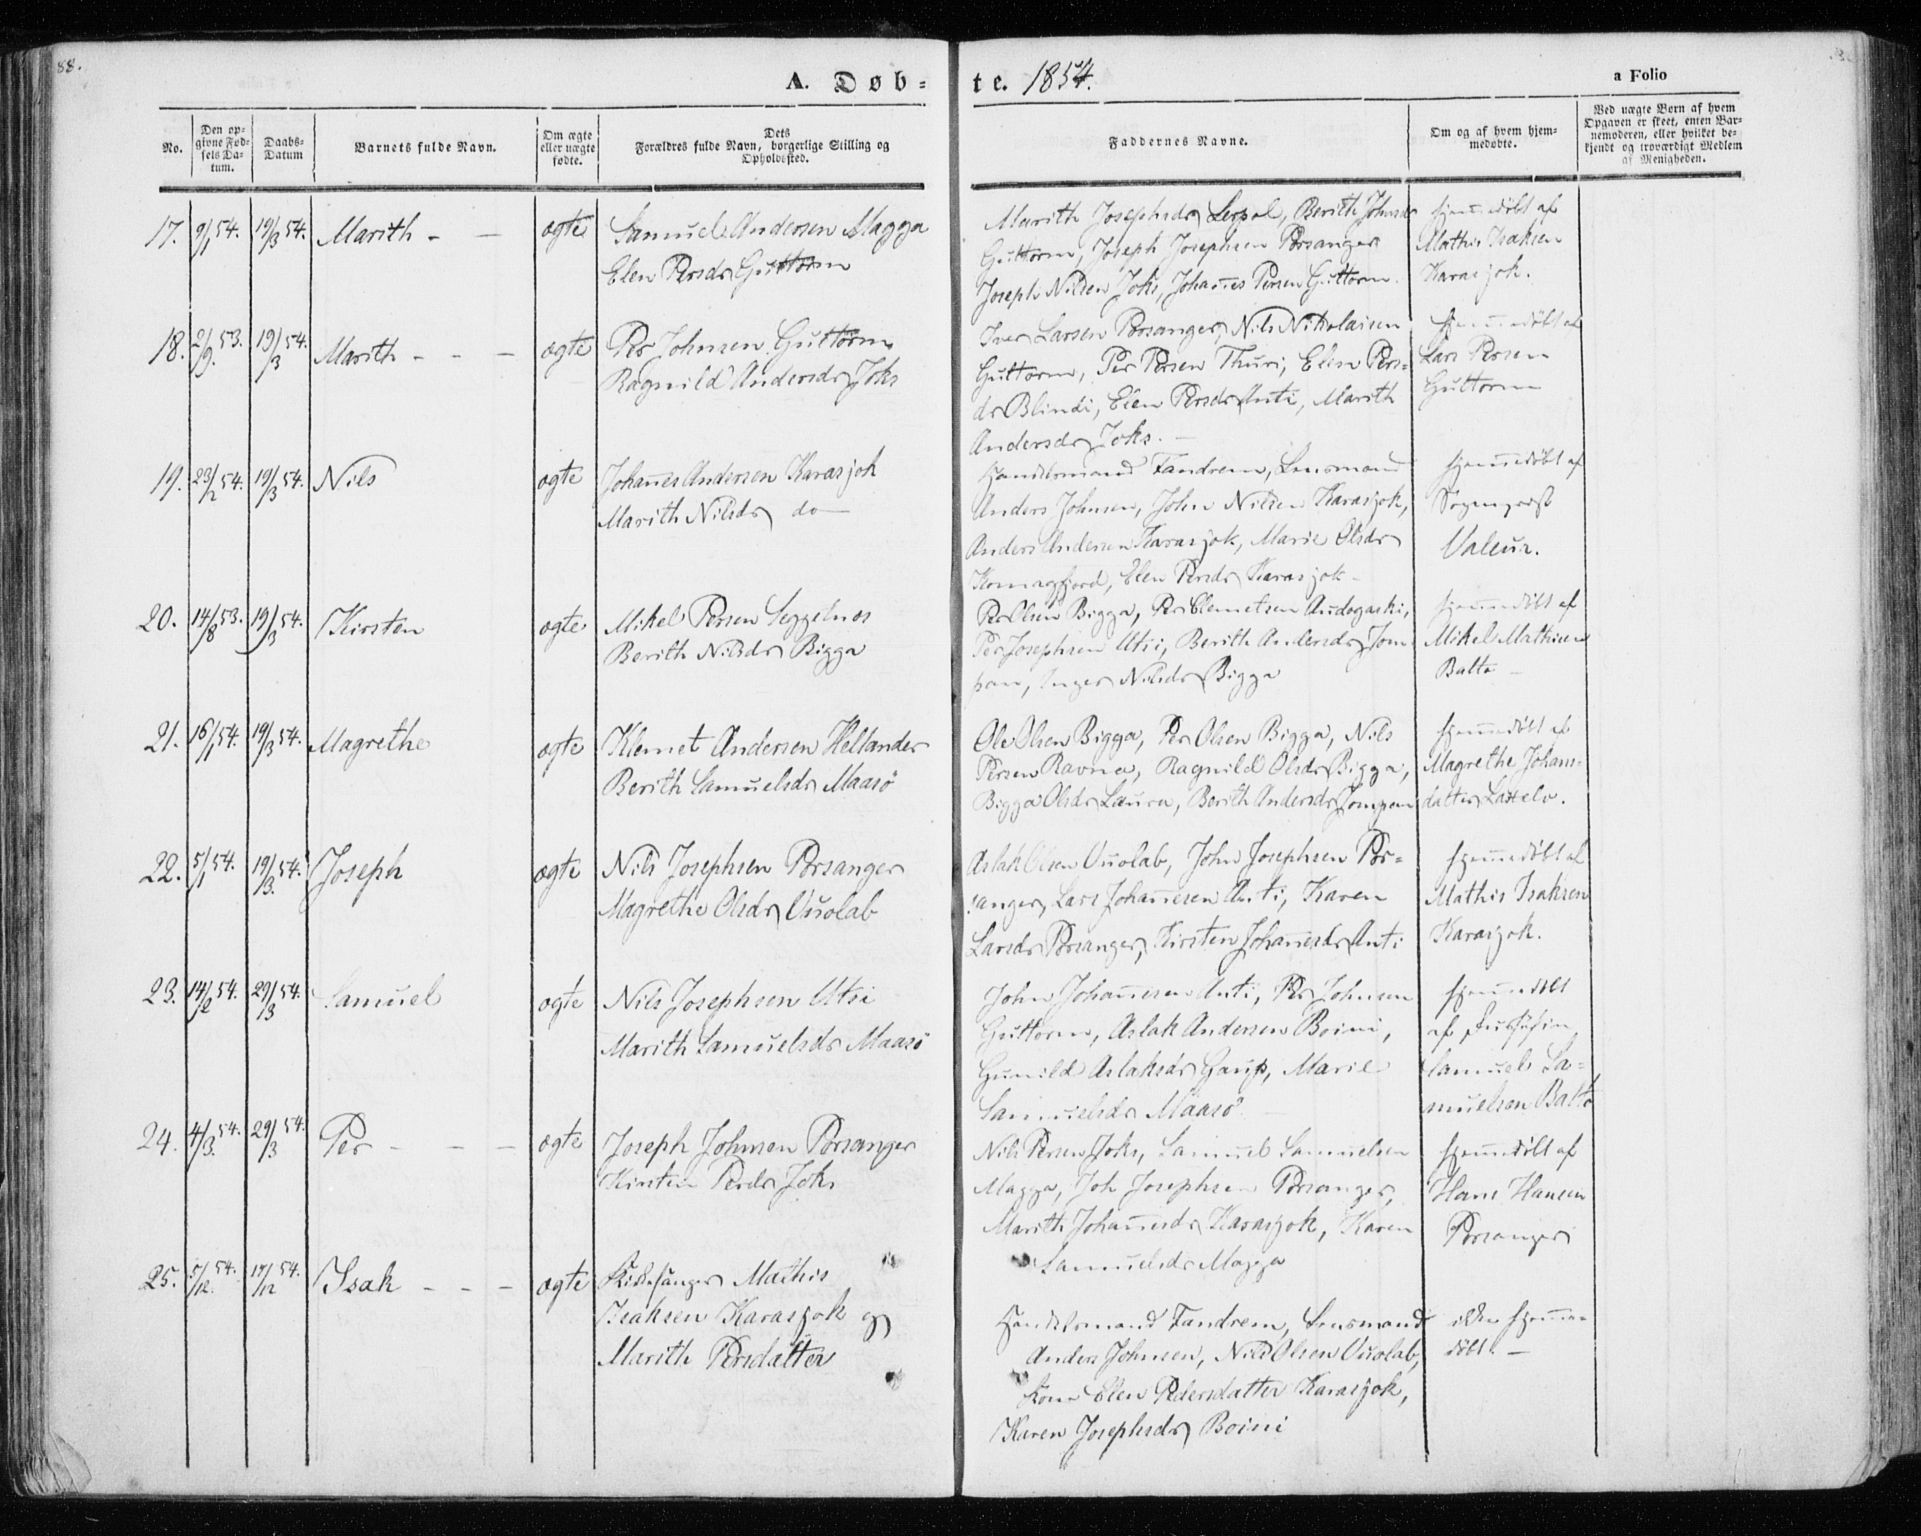 88.
A. Døb-
te. 1854.
a Folio
No.
Den op-
givne Fød-
sels Da-
tum.
Daabs-
Datum
Barnets fulde Navn.
Om ægte
eller uægte
fødte.
Dets
Forældres fulde Navn, borgerlige Stilling og
Opholdssted.
Faddernes Navne.
Om og af hvem hjem-
medøbte.
Ved uægte Børn af hvem
Opgaven er skeet, enten Bar-
nemoderen, eller hvilket be-
kjendt og troværdigt Medlem
af Menigheden.
17. 9/1 54. 19/3 54. Marith - — ægte Samuel Andersen Magga
Elen Persdr Guttorm
Marith Josephsdr Berith Johnsdr
Guttorm, Joseph Josephsen Porsanger
Joseph Nilsen Joks, Johannes Persen Guttorm.
hjemmedøbt af
Mathis Isaksen
Karasjok.
18. 2/9 53. 19/3 54. Marith - - - ægte Per Johnsen Guttorm
Ragnild Andersdr Joks
Iver Larsen Porsanger, Nils Nikolaisen
Guttorm, Per Persen Thuri, Elen Pers-
dr Blindi, Elen Persdr Anti, Marith
Andersdr Joks. —
hjemmedøbt af
Lars Persen
Guttorm
19. 23/2 54. 19/3 54. Nils ægte Johannes Andersen Karasjok
Marith Nilsdr do —
Handelsmand Fandrem, Lensmand
Anders Johnsen, John Nilsen Karasjok,
Anders Andersen Karasjok, Marie Olsdr
Komagfjord, Elen Persdr Karasjok —
hjemmedøbt af
Sogneprest
Valeur.
20. 14/8 53. 19/3 54. Kirsten ægte Mikel Persen Seggelnos
Berith Nilsdr Bigga
Per Olsen Bigga, Per Clemetsen Audogaski,
Per Josephsen Utsi, Berith Andersdr Jom
pan, Inger Nilsdr Bigga
hjemmedøbt af
Mikel Mathisen
Balto —
21. 16/1 54. 19/3 54. Magrethe ægte Klemet Andersen Hellander
Berith Samuelsdr Maasø
Ole Olsen Bigga, Per Olsen Bigga, Nils
Persen Ravna, Ragnild Olsdr Bigga,
Bigga Olsdr Laura, Berith Andersdr Jompan
hjemmedøbt af
Magrethe Johans-
datter Laxelv.
22. 5/1 54. 19/3 54. Joseph ægte Nils Josephsen Porsanger
Magrethe Olsdr Vuolab
Aslak Olsen Vuolab, John Josephsen Por-
sanger, Lars Johannesen Anti, Karen
Larsdr Porsanger, Kirsten Johannesdr Anti
hjemmedøbt af
Mathis Isaksen
Karasjok.
23. 14/2 54. 29/3 54. Samuel ægte Nils Josephsen Utsi
Marith Samuelsdr Maasø
John Johannesen Anti, Per Johnsen
Guttorm, Aslak Andersen Boini,
Gunild Aslaksdr Gaup, Marie
Samuelsdr Maasø
hjemmedøbt
af
Samuel Sa-
muelsen Balto
24. 4/3 54. 29/3 54. Per - - - ægte Joseph Johnsen Porsanger
Kirsten Persdr Joks
Nils Persen Joks, Samuel Samuelsen
Magga, Joh Josephsen Porsanger,
Marith Johannesdr Karasjok, Karen
Samuelsdr Magga
hjemmedøbt af
Hans Hansen
Porsanger
25. 5/12 54. 17/12 54. Isak - - - ægte Kirkesanger Mathis
Isaksen Karasjok og
Marith Persdatter
Handelsmand Fandrem, Lensmand
Anders Johnsen, Nils Olsen Vuolab,
Kone Elen Pedersdatter Karasjok,
Karen Josephsdr Boini
ikke hjemme-
døbt. —